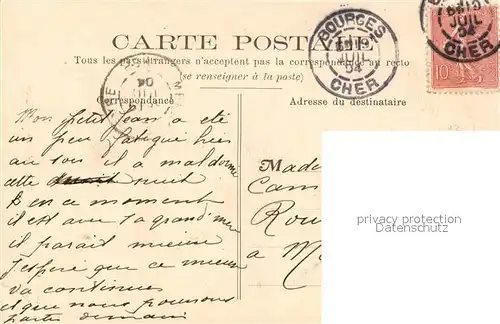 CARTE POSTALE
Tous les pays étrangers n'acceptent pas la correspondance au recto
(se renseigner à la poste)
Correspondance
Adresse du destinataire
BOURGES
JUIL
04
CHER
JUIL
04
CHER
10
Mon petit Jean a été
un peu fatigué hier
au soir il a mal dormi
cette nuit
En ce moment
il est avec sa grand mère
il parait mieux
j'espère que ce mieux
va continuer
et que nous pourrons
partir demain
Mada
Cam
Rou
à M
privacy protection